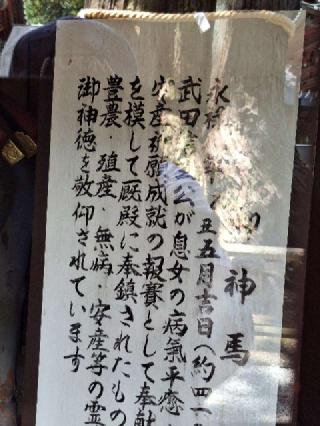 神馬
永禄 丑五月吉日(約四
武田 公が息女の病氣平癒
安産祈願成就の報賽として奉献
を模して厩殿に奉鎮されたもの
豊農・殖産・無病・安産等の霊
御神徳を敬仰されています